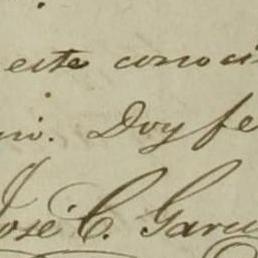 este conoci
ni. Doy fe
José C. Garci